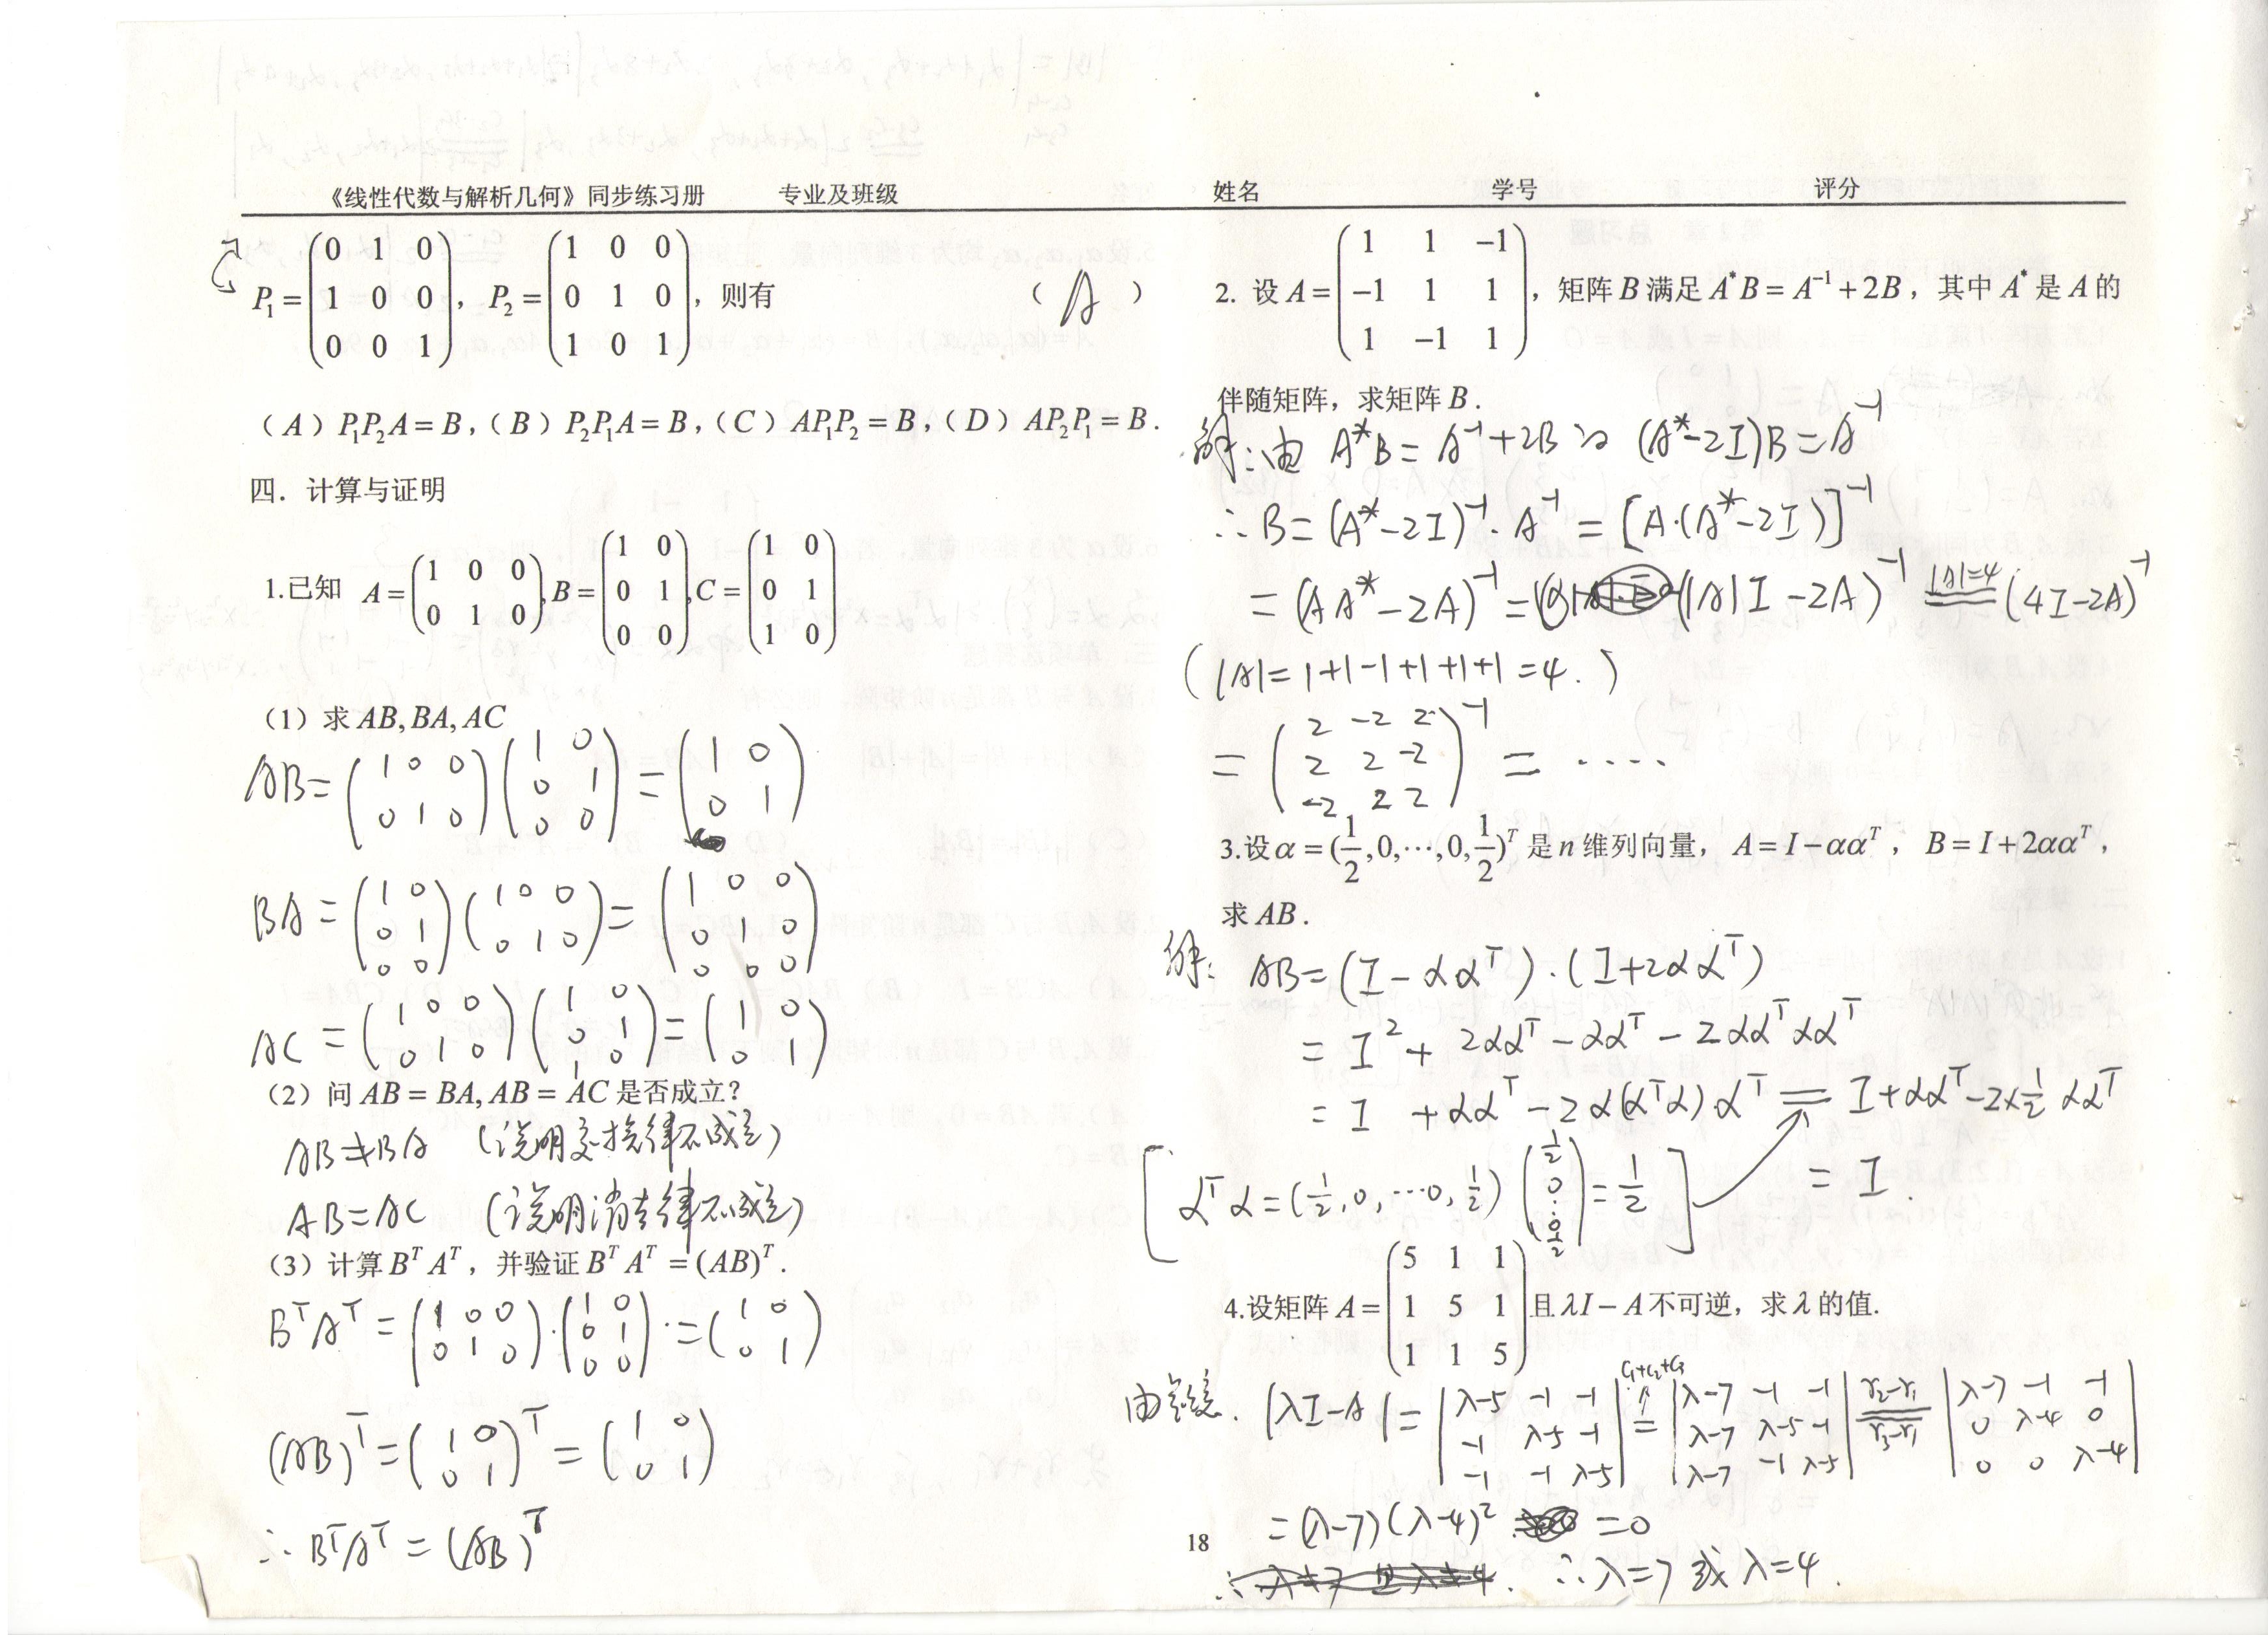 《线性代数与解析几何》同步练习册 专业及班级 姓名 学号 评分
P₁ = \begin{pmatrix} 0 & 1 & 0 \\ 1 & 0 & 0 \\ 0 & 0 & 1 \end{pmatrix}, P₂ = \begin{pmatrix} 1 & 0 & 0 \\ 0 & 1 & 0 \\ 1 & 0 & 1 \end{pmatrix}, 则有 ( A )
(A) P₁P₂A = B, (B) P₂P₁A = B, (C) AP₁P₂ = B, (D) AP₂P₁ = B.
四. 计算与证明
1.已知 A = \begin{pmatrix} 1 & 0 & 0 \\ 0 & 1 & 0 \end{pmatrix}, B = \begin{pmatrix} 1 & 0 \\ 0 & 1 \\ 0 & 0 \end{pmatrix}, C = \begin{pmatrix} 1 & 0 \\ 0 & 1 \\ 1 & 0 \end{pmatrix}
(1) 求 AB, BA, AC
AB = \begin{pmatrix} 1 & 0 & 0 \\ 0 & 1 & 0 \end{pmatrix} \begin{pmatrix} 1 & 0 \\ 0 & 1 \\ 0 & 0 \end{pmatrix} = \begin{pmatrix} 1 & 0 \\ 0 & 1 \end{pmatrix}
BA = \begin{pmatrix} 1 & 0 \\ 0 & 1 \\ 0 & 0 \end{pmatrix} \begin{pmatrix} 1 & 0 & 0 \\ 0 & 1 & 0 \end{pmatrix} = \begin{pmatrix} 1 & 0 & 0 \\ 0 & 1 & 0 \\ 0 & 0 & 0 \end{pmatrix}
AC = \begin{pmatrix} 1 & 0 & 0 \\ 0 & 1 & 0 \end{pmatrix} \begin{pmatrix} 1 & 0 \\ 0 & 1 \\ 1 & 0 \end{pmatrix} = \begin{pmatrix} 1 & 0 \\ 0 & 1 \end{pmatrix}
(2) 问 AB = BA, AB = AC 是否成立?
AB ≠ BA (说明交换律不成立)
AB = AC (说明消去律不成立)
(3) 计算 BᵀAᵀ, 并验证 BᵀAᵀ = (AB)ᵀ.
BᵀAᵀ = \begin{pmatrix} 1 & 0 & 0 \\ 0 & 1 & 0 \end{pmatrix} · \begin{pmatrix} 1 & 0 \\ 0 & 1 \\ 0 & 0 \end{pmatrix} = \begin{pmatrix} 1 & 0 \\ 0 & 1 \end{pmatrix}
(AB)ᵀ = \begin{pmatrix} 1 & 0 \\ 0 & 1 \end{pmatrix}ᵀ = \begin{pmatrix} 1 & 0 \\ 0 & 1 \end{pmatrix}
∴ BᵀAᵀ = (AB)ᵀ
2. 设 A = \begin{pmatrix} 1 & 1 & -1 \\ -1 & 1 & 1 \\ 1 & -1 & 1 \end{pmatrix}, 矩阵 B 满足 A*B = A⁻¹ + 2B, 其中 A* 是 A 的
伴随矩阵, 求矩阵 B.
解: 由 A*B = A⁻¹ + 2B ⇒ (A* - 2I)B = A⁻¹
∴ B = (A* - 2I)⁻¹ · A⁻¹ = [A·(A* - 2I)]⁻¹
= (AA* - 2A)⁻¹ = (|A|I - 2A)⁻¹ \overset{|A|=4}{=} (4I - 2A)⁻¹
(|A| = 1+1-1+1+1+1 = 4.)
= \begin{pmatrix} 2 & -2 & 2 \\ 2 & 2 & -2 \\ -2 & 2 & 2 \end{pmatrix}⁻¹ = ····
3.设 α = (\frac{1}{2}, 0, ⋯, 0, \frac{1}{2})ᵀ 是 n 维列向量, A = I - ααᵀ, B = I + 2ααᵀ,
求 AB.
解: AB = (I - ααᵀ)·(I + 2ααᵀ)
= I² + 2ααᵀ - ααᵀ - 2ααᵀααᵀ
= I + ααᵀ - 2α(αᵀα)·αᵀ = I + ααᵀ - 2×\frac{1}{2} ααᵀ
[ αᵀα = (\frac{1}{2}, 0, ⋯0, \frac{1}{2}) \begin{pmatrix} \frac{1}{2} \\ 0 \\ ⋮ \\ 0 \\ \frac{1}{2} \end{pmatrix} = \frac{1}{2} ] = I.
4.设矩阵 A = \begin{pmatrix} 5 & 1 & 1 \\ 1 & 5 & 1 \\ 1 & 1 & 5 \end{pmatrix} 且 λI - A 不可逆, 求 λ 的值.
|λI - A| = \begin{vmatrix} λ-5 & -1 & -1 \\ -1 & λ-5 & -1 \\ -1 & -1 & λ-5 \end{vmatrix} \overset{c₁+c₂+c₃}{=} \begin{vmatrix} λ-7 & -1 & -1 \\ λ-7 & λ-5 & -1 \\ λ-7 & -1 & λ-5 \end{vmatrix} \overset{r₂-r₁}{\underset{r₃-r₁}{=}} \begin{vmatrix} λ-7 & -1 & -1 \\ 0 & λ-4 & 0 \\ 0 & 0 & λ-4 \end{vmatrix}
= (λ-7)(λ-4)² = 0
∴ λ=7 或 λ=4.
18